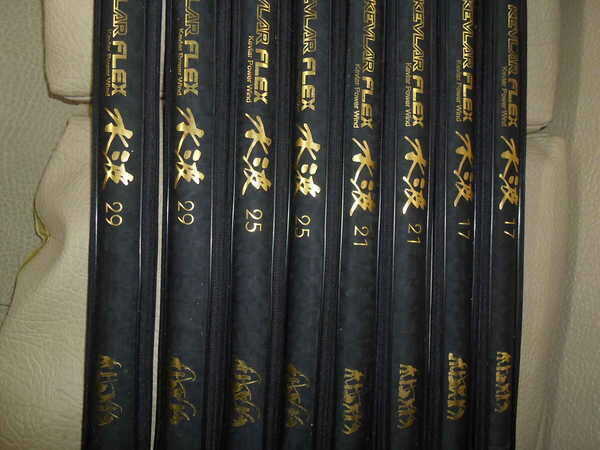 EVLAR FLEX
Kevlar Power Wind
水波 29
LAR FLEX
Kevlar Power Wind
水波 29
R FLEX
Kevlar Power Wind
水波 25
AR FLEX
Kevlar Power Wind
水波 25
KEVLAR FLEX
Kevlar Power Wind
水波 21
VLAR FLEX
Kevlar Power Wind
水波 21
KEVLAR FLEX
Kevlar Power Wind
水波 17
KEVLAR FLEX
Kevlar Power Wind
水波 17